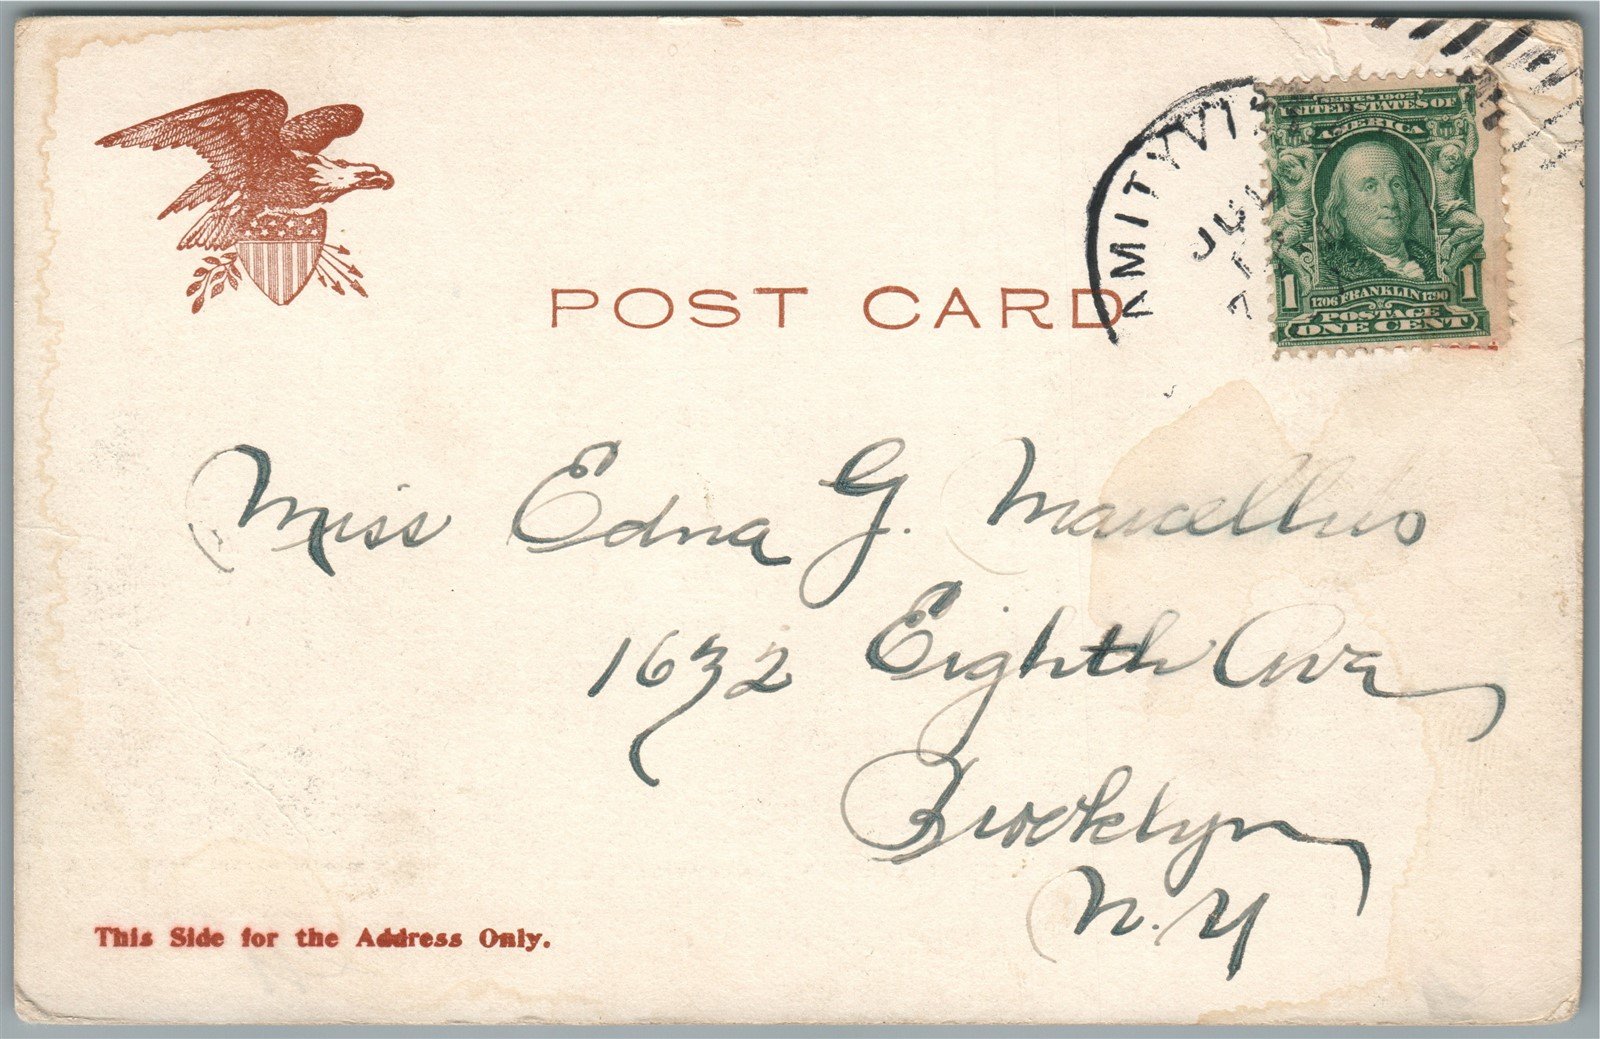 POST CARD
AMITYVI
JUL
1
7
SERIES 1902
UNITED STATES OF
AMERICA
1 1706 FRANKLIN 1790 1
POSTAGE
ONE CENT
Miss Edna G. Marcellus
1632 Eighth Ave
Brooklyn
N.Y
This Side for the Address Only.